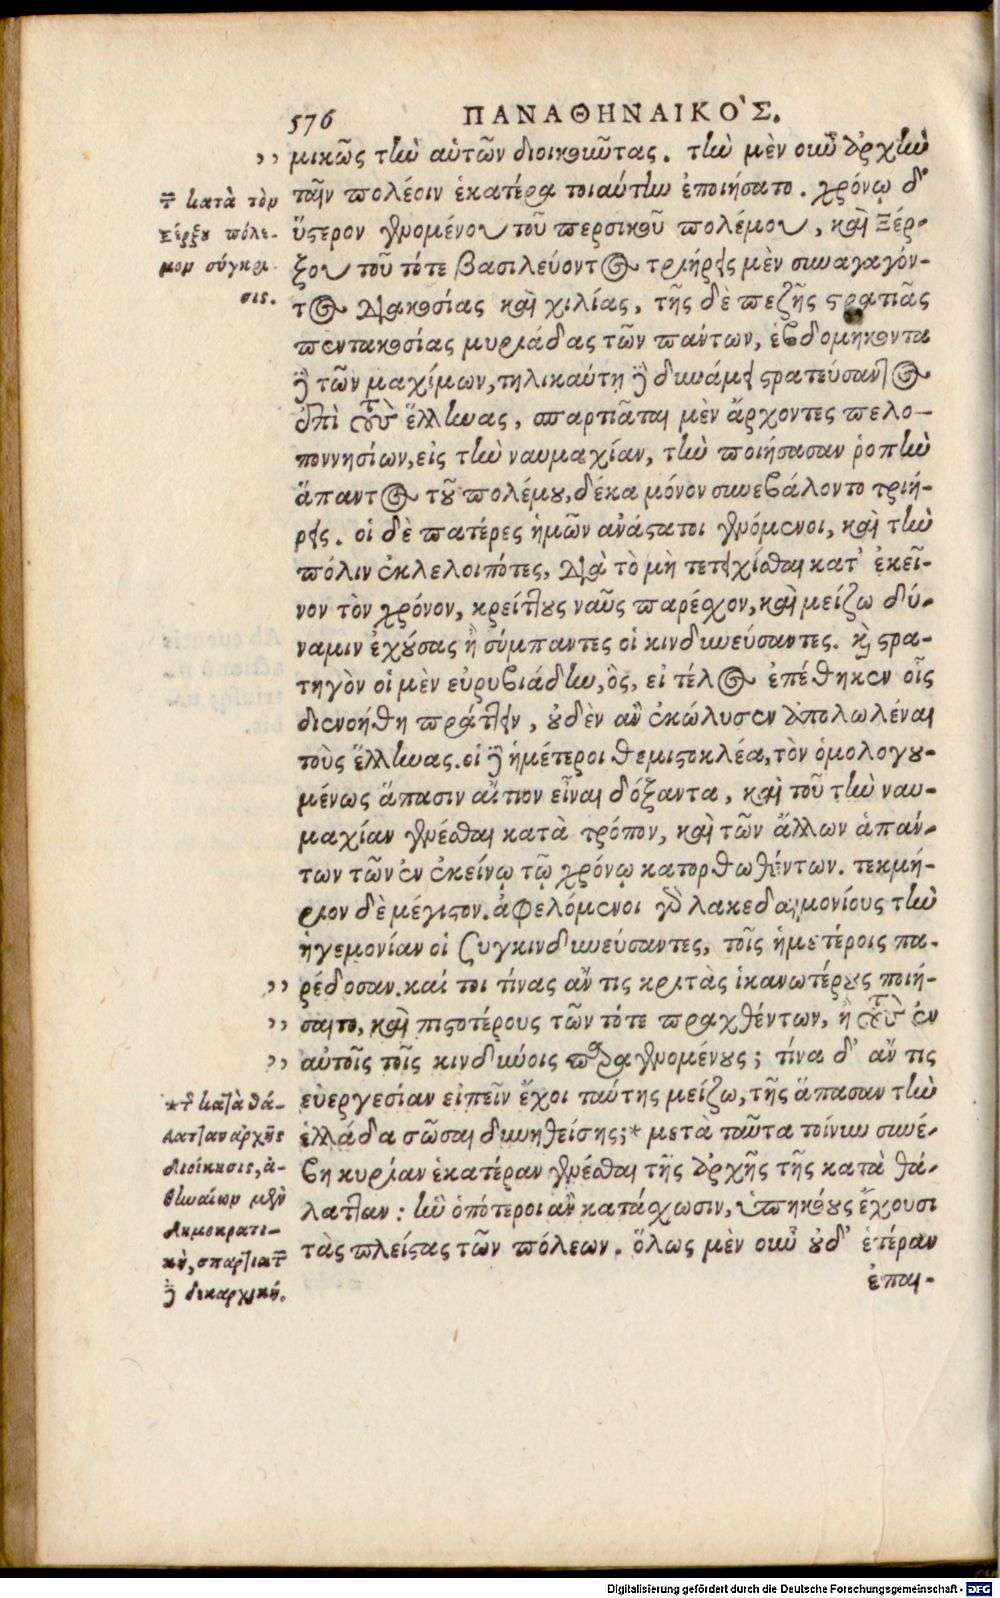 576
ΠΑΝΑΘΗΝΑΙΚΟ'Σ.
,, μικῶς τὴν αὑτῶν διοικοῦντας. τὴν μὲν οὖν ἀρχὴν
τοῖν πολέοιν ἑκατέρα τοιαύτην ἐποιήσατο. χρόνῳ δ'
ὕστερον γενομένου τοῦ περσικοῦ πολέμου, καὶ Ξέρ-
ξου τοῦ τότε βασιλεύοντος τριήρεις μὲν συναγαγόν-
τος διακοσίας καὶ χιλίας, τῆς δὲ πεζῆς στρατιᾶς
πεντακοσίας μυριάδας τῶν πάντων, ἑβδομήκοντα
δὲ τῶν μαχίμων, τηλικαύτῃ δὲ δυνάμει στρατεύσαντος
ἐπὶ τοὺς ἕλληνας, σπαρτιᾶται μὲν ἄρχοντες πελο-
ποννησίων, εἰς τὴν ναυμαχίαν, τὴν ποιήσασαν ῥοπὴν
ἅπαντος τοῦ πολέμου, δέκα μόνον συνεβάλοντο τριή-
ρεις. οἱ δὲ πατέρες ἡμῶν ἀνάστατοι γενόμενοι, καὶ τὴν
πόλιν ἐκλελοιπότες, διὰ τὸ μὴ τετειχίσθαι κατ' ἐκεῖ-
νον τὸν χρόνον, κρείττους ναῦς παρέσχον, καὶ μείζω δύ-
ναμιν ἐχούσας ἢ σύμπαντες οἱ κινδυνεύσαντες. καὶ στρα-
τηγὸν οἱ μὲν εὐρυβιάδην, ὃς, εἰ τέλος ἐπέθηκεν οἷς
διενοήθη πράττειν, οὐδὲν ἂν ἐκώλυσεν ἀπολωλέναι
τοὺς ἕλληνας. οἱ δὲ ἡμέτεροι θεμιστοκλέα, τὸν ὁμολογου-
μένως ἅπασιν αἴτιον εἶναι δόξαντα, καὶ τοῦ τὴν ναυ-
μαχίαν γενέσθαι κατὰ τρόπον, καὶ τῶν ἄλλων ἁπάν-
των τῶν ἐν ἐκείνῳ τῷ χρόνῳ κατορθωθέντων. τεκμή-
ριον δὲ μέγιστον. ἀφελόμενοι γὰρ λακεδαιμονίους τὴν
ἡγεμονίαν οἱ συγκινδυνεύσαντες, τοῖς ἡμετέροις πα-
,, ρέδοσαν. καί τοι τίνας ἄν τις κριτὰς ἱκανωτέρους ποιή-
,, σαιτο, καὶ πιστοτέρους τῶν τότε πραχθέντων, ἢ τοὺς ἐν
,, αὐτοῖς τοῖς κινδύνοις παραγενομένους; τίνα δ' ἄν τις
εὐεργεσίαν εἰπεῖν ἔχοι ταύτης μείζω, τῆς ἅπασαν τὴν
ἑλλάδα σῶσαι δυνηθείσης; * μετὰ ταῦτα τοίνυν συνέ-
βη κυρίαν ἑκατέραν γενέσθαι τῆς ἀρχῆς τῆς κατὰ θά-
λατταν: ἣν ὁπότεροι ἂν κατάσχωσιν, ὑπηκόους ἔχουσι
τὰς πλείστας τῶν πόλεων. ὅλως μὲν οὖν οὐδ' ἑτέραν
ἐπαι-
τῶν κατὰ τὸν
Ξέρξου πόλε-
μον σύγκρι
σις.
* τῆς κατὰ θά-
λατταν ἀρχῆς
διοίκησις, ἀ-
θηναίων μὲν
δημοκρατι-
κὴ, σπαρτιατῶν
δὲ δεκαρχική.
Digitalisierung gefördert durch die Deutsche Forschungsgemeinschaft - DFG